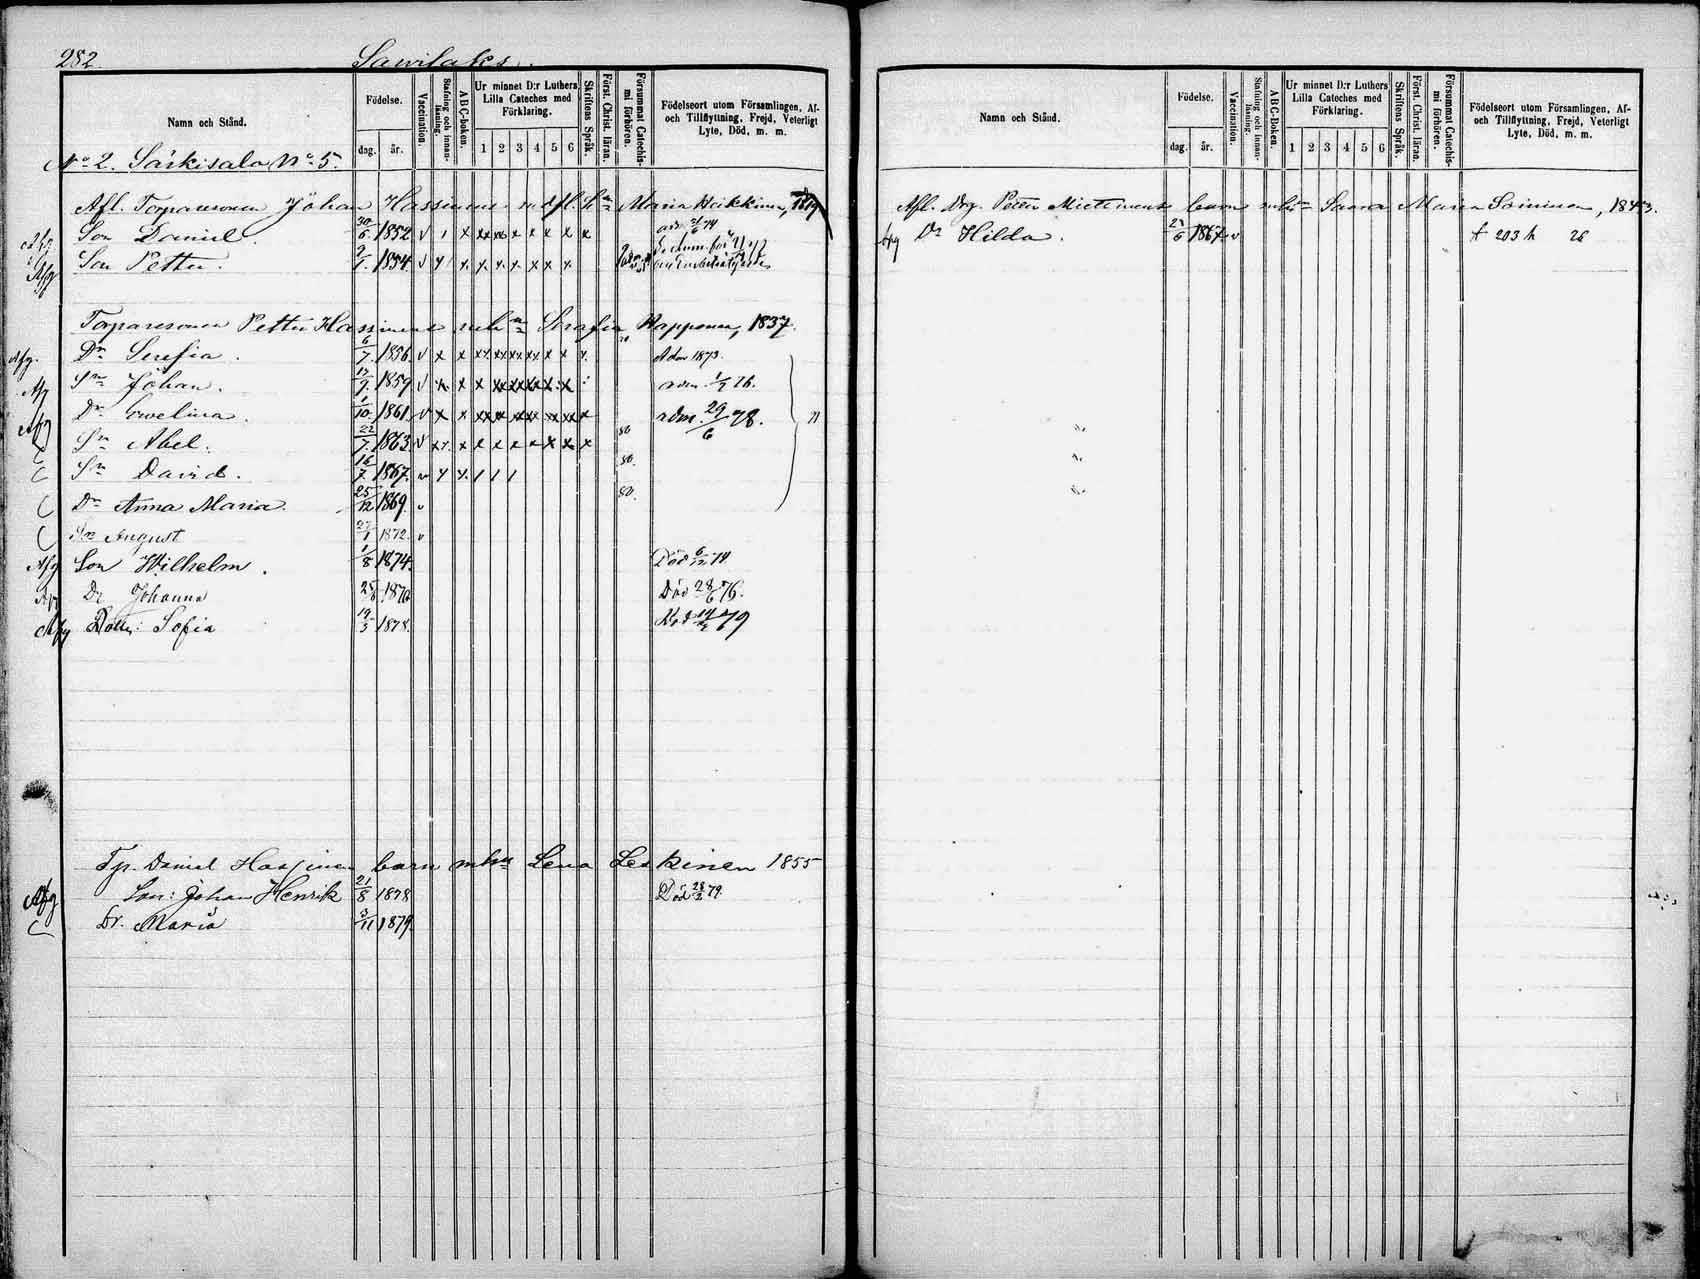 282. Sawilaks.
Namn och Stånd.
Födelse.
dag. år.
Vaccination.
Stafning och innanläsning.
ABC-boken.
Ur minnet D:r Luthers Lilla Cateches med Förklaring.
1 2 3 4 5 6
Skriftens Språk.
Först. Christ. läran.
Försummat Catechismi förhören.
Födelseort utom Församlingen, Af- och Tillflyttning, Frejd, Veterligt Lyte, Död, m. m.
No 2. Särkisalo No 5.
Afl. Torparesonen Johan Hassinens m afl. h Maria Häkkinen, 1819
Afg Son Daniel. 30/6 1852 v
Afg Son Petter. 9/1 1854 v
Torparesonen Petter Hassinens mhu Serafia Happonen, 1837.
Afg. Dr Serefia. 6/7 1856 v Adm 1873.
Afg Sn Johan. 17/9 1859 v adm. 1/7 76.
Afg Dr Ewelina. 1/10 1861 v adm. 29/6 78.
Sn Abel. 22/7 1863 v 80
Sn David. 16/7 1867. v 80.
Dr Anna Maria. 25/12 1869. v 80.
Sn August 27/1 1872. v
Afg Son Wilhelm. 1/8 1874. Död 6/12 74.
Afg Dr Johanna 1876 Död 28/6 76.
Afg Dotter: Sofia 19/3 1878. Död 79
Tp. Daniel Hassinen barn mhu Lena Leskinen 1855
Afg Son: Johan Henrik 21/8 1878 Död 28/2 79.
Dr. Maria 3/11 1879.
Namn och Stånd.
Födelse.
dag. år.
Vaccination.
Stafning och innanläsning.
ABC-Boken.
Ur minnet D:r Luthers Lilla Cateches med Förklaring.
1 2 3 4 5 6
Skriftens Språk.
Först. Christ. läran.
Försummat Catechismi förhören.
Födelseort utom Församlingen, Af- och Tillflyttning, Frejd, Veterligt Lyte, Död, m. m.
Afl. Drg. Petter Mietinens barn mhu Saara Maria Soininen, 1843.
Afg Dr Hilda. 23/6 1867 v f 203 h 26